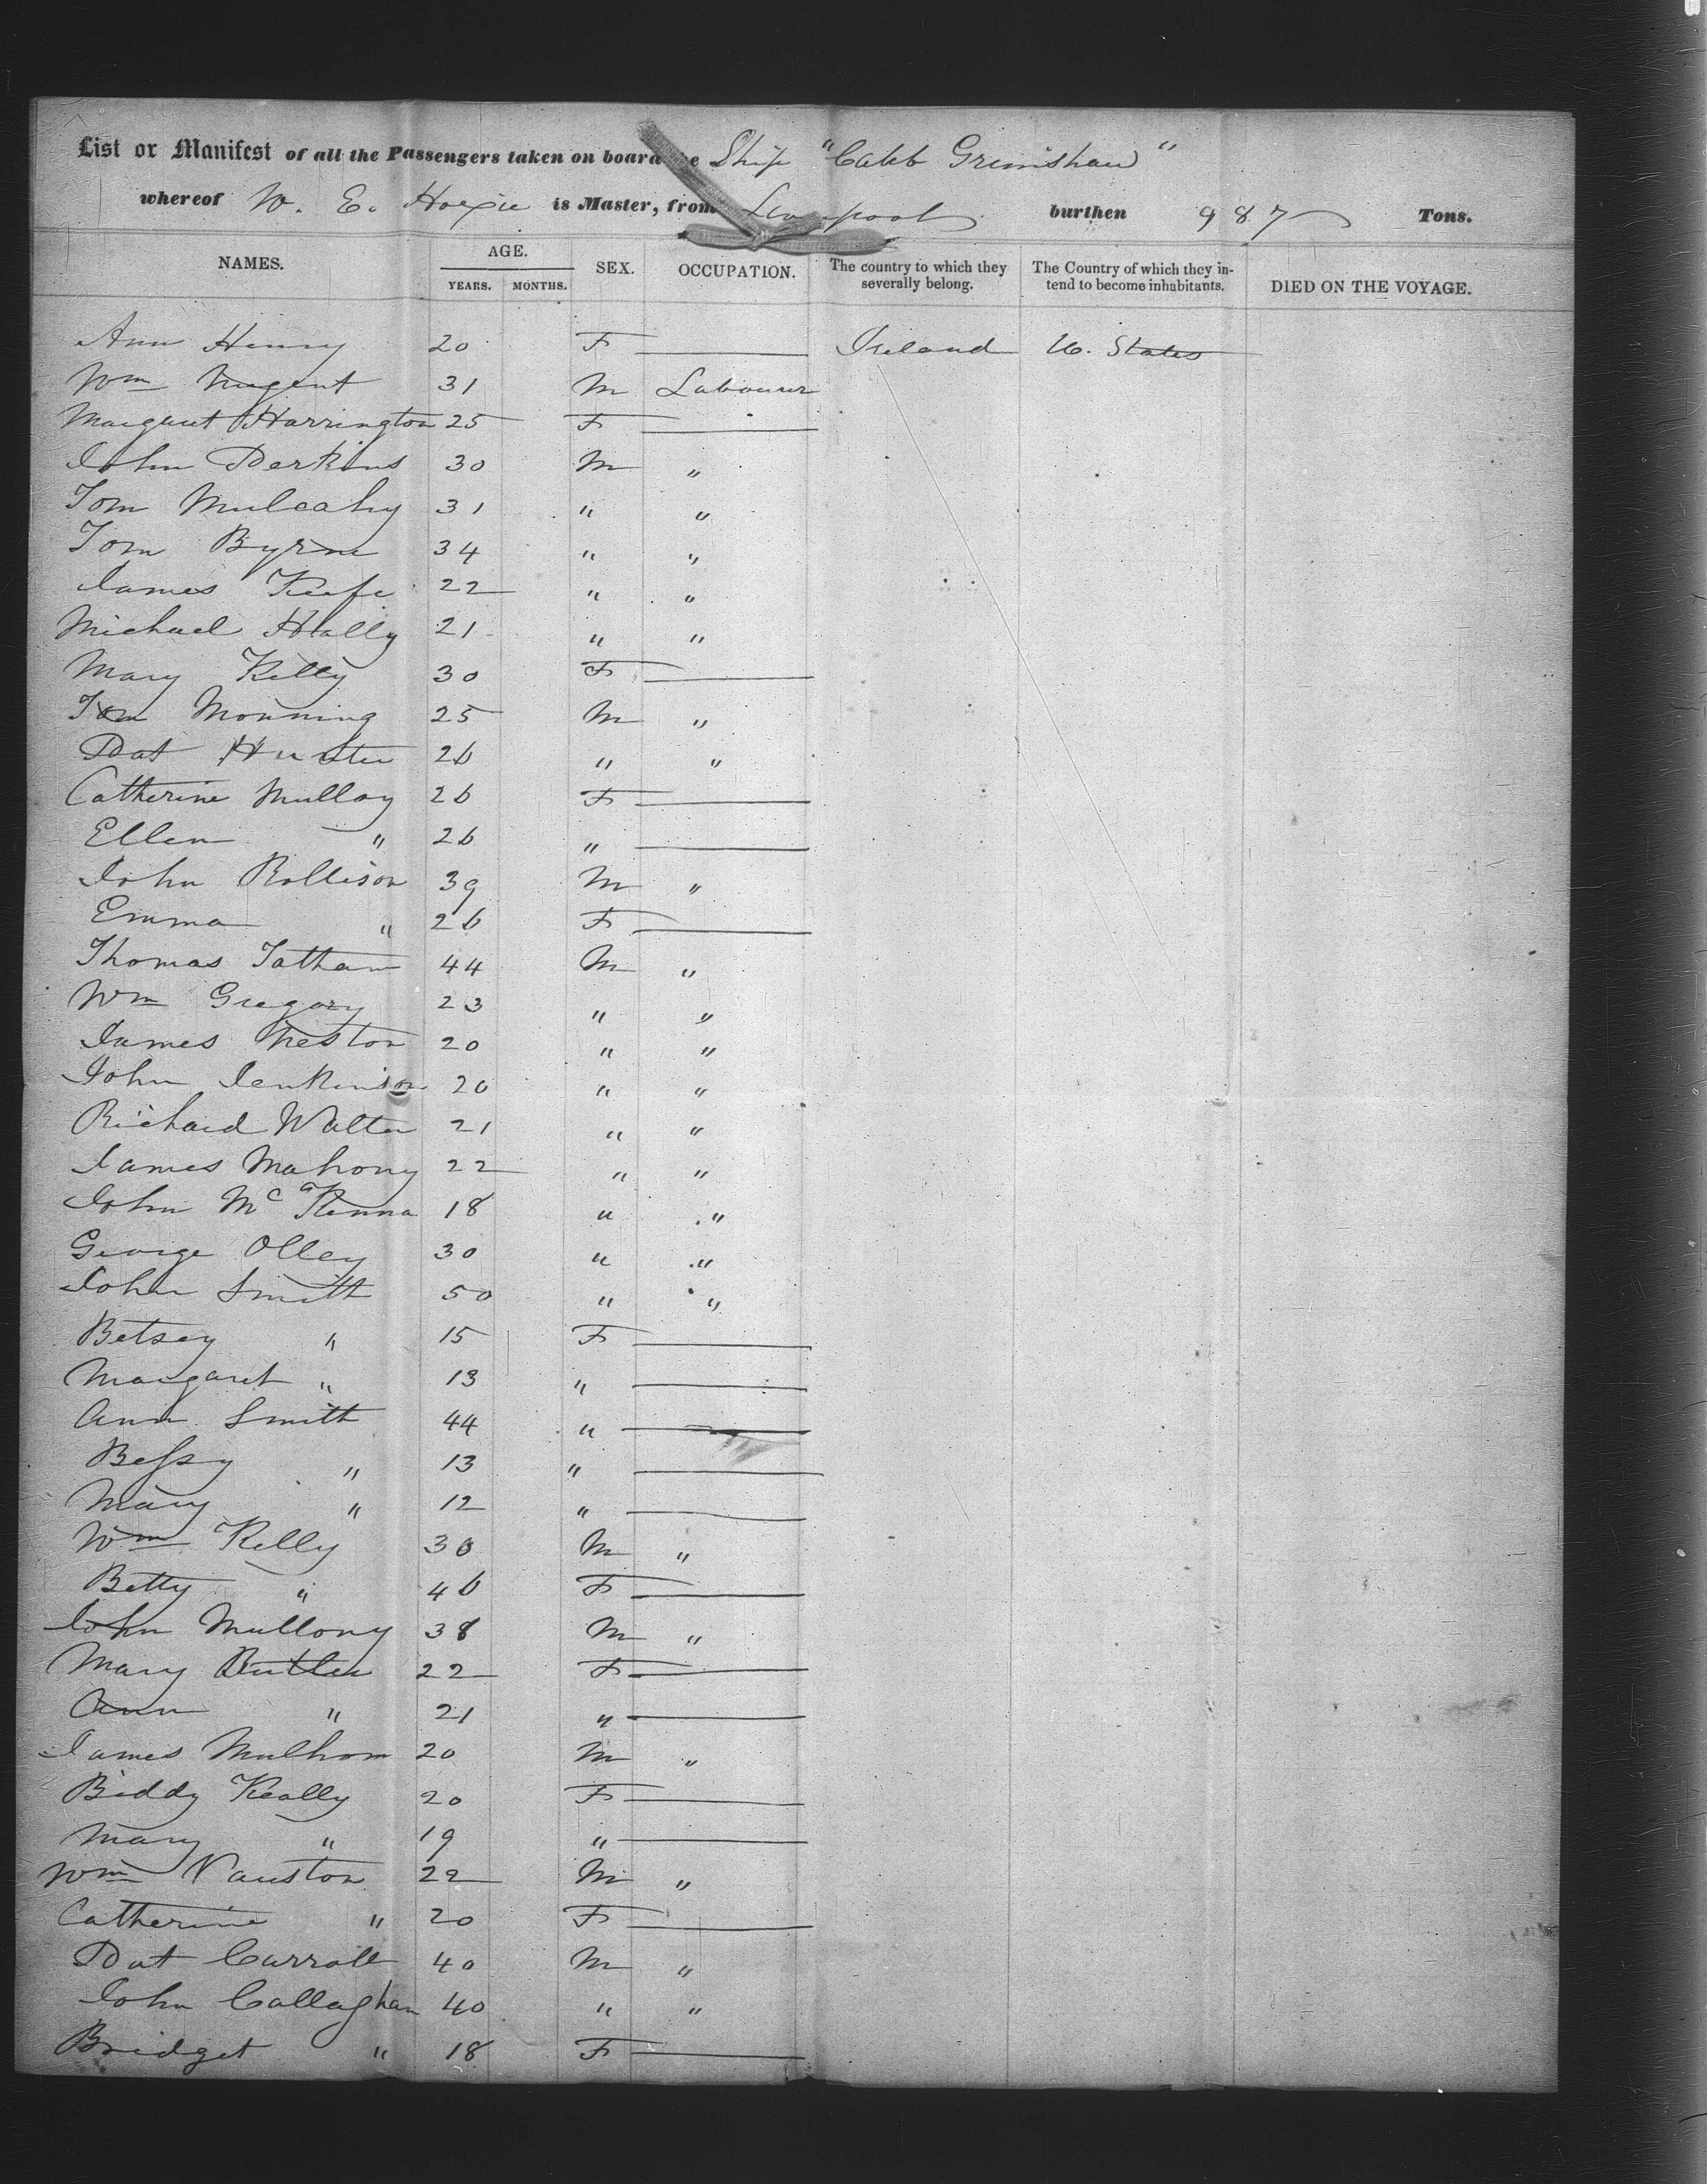 List or Manifest of all the Passengers taken on board Ship "Caleb Grimshaw"
whereof W. E. Hoxie is Master, from Liverpool burthen 987 Tons.
NAMES. AGE. YEARS. MONTHS. SEX. OCCUPATION. The country to which they severally belong. The Country of which they intend to become inhabitants. DIED ON THE VOYAGE.
Ann Henry 20 F Ireland U. States
Wm Nugent 31 M Labourer
Margaret Harrington 25 F
John Perkins 30 M " 
Tom Mulcahy 31 " "
Tom Byrne 34 " "
James Keefe 22 " "
Michael Hally 21 " "
Mary Kelly 30 F
Tom Monning 25 M "
Pat Hunter 26 " "
Catherine Mulloy 26 F
Ellen " 26 "
John Rollison 39 M "
Emma " 26 F
Thomas Tatham 44 M "
Wm Gregory 23 " "
James 20 " "
John Jenkinson 20 " "
Richard Walter 21 " "
James Mahony 22 " "
John McKenna 18 " "
George Olley 30 " "
John Smith 50 " "
Betsey " 15 F
Margaret " 13 "
Ann Smith 44 "
Bessy " 13 "
Mary " 12 "
Wm Kelly 30 M "
Betty " 46 F
John Mullony 38 M "
Mary Butler 22 F
Ann " 21 "
James Mulhom 20 M "
Biddy Keally 20 F
Mary " 19 "
Wm Vauston 22 M "
Catherine " 20 F
Pat Carroll 40 M "
John Callaghan 40 " "
Bridget " 18 F